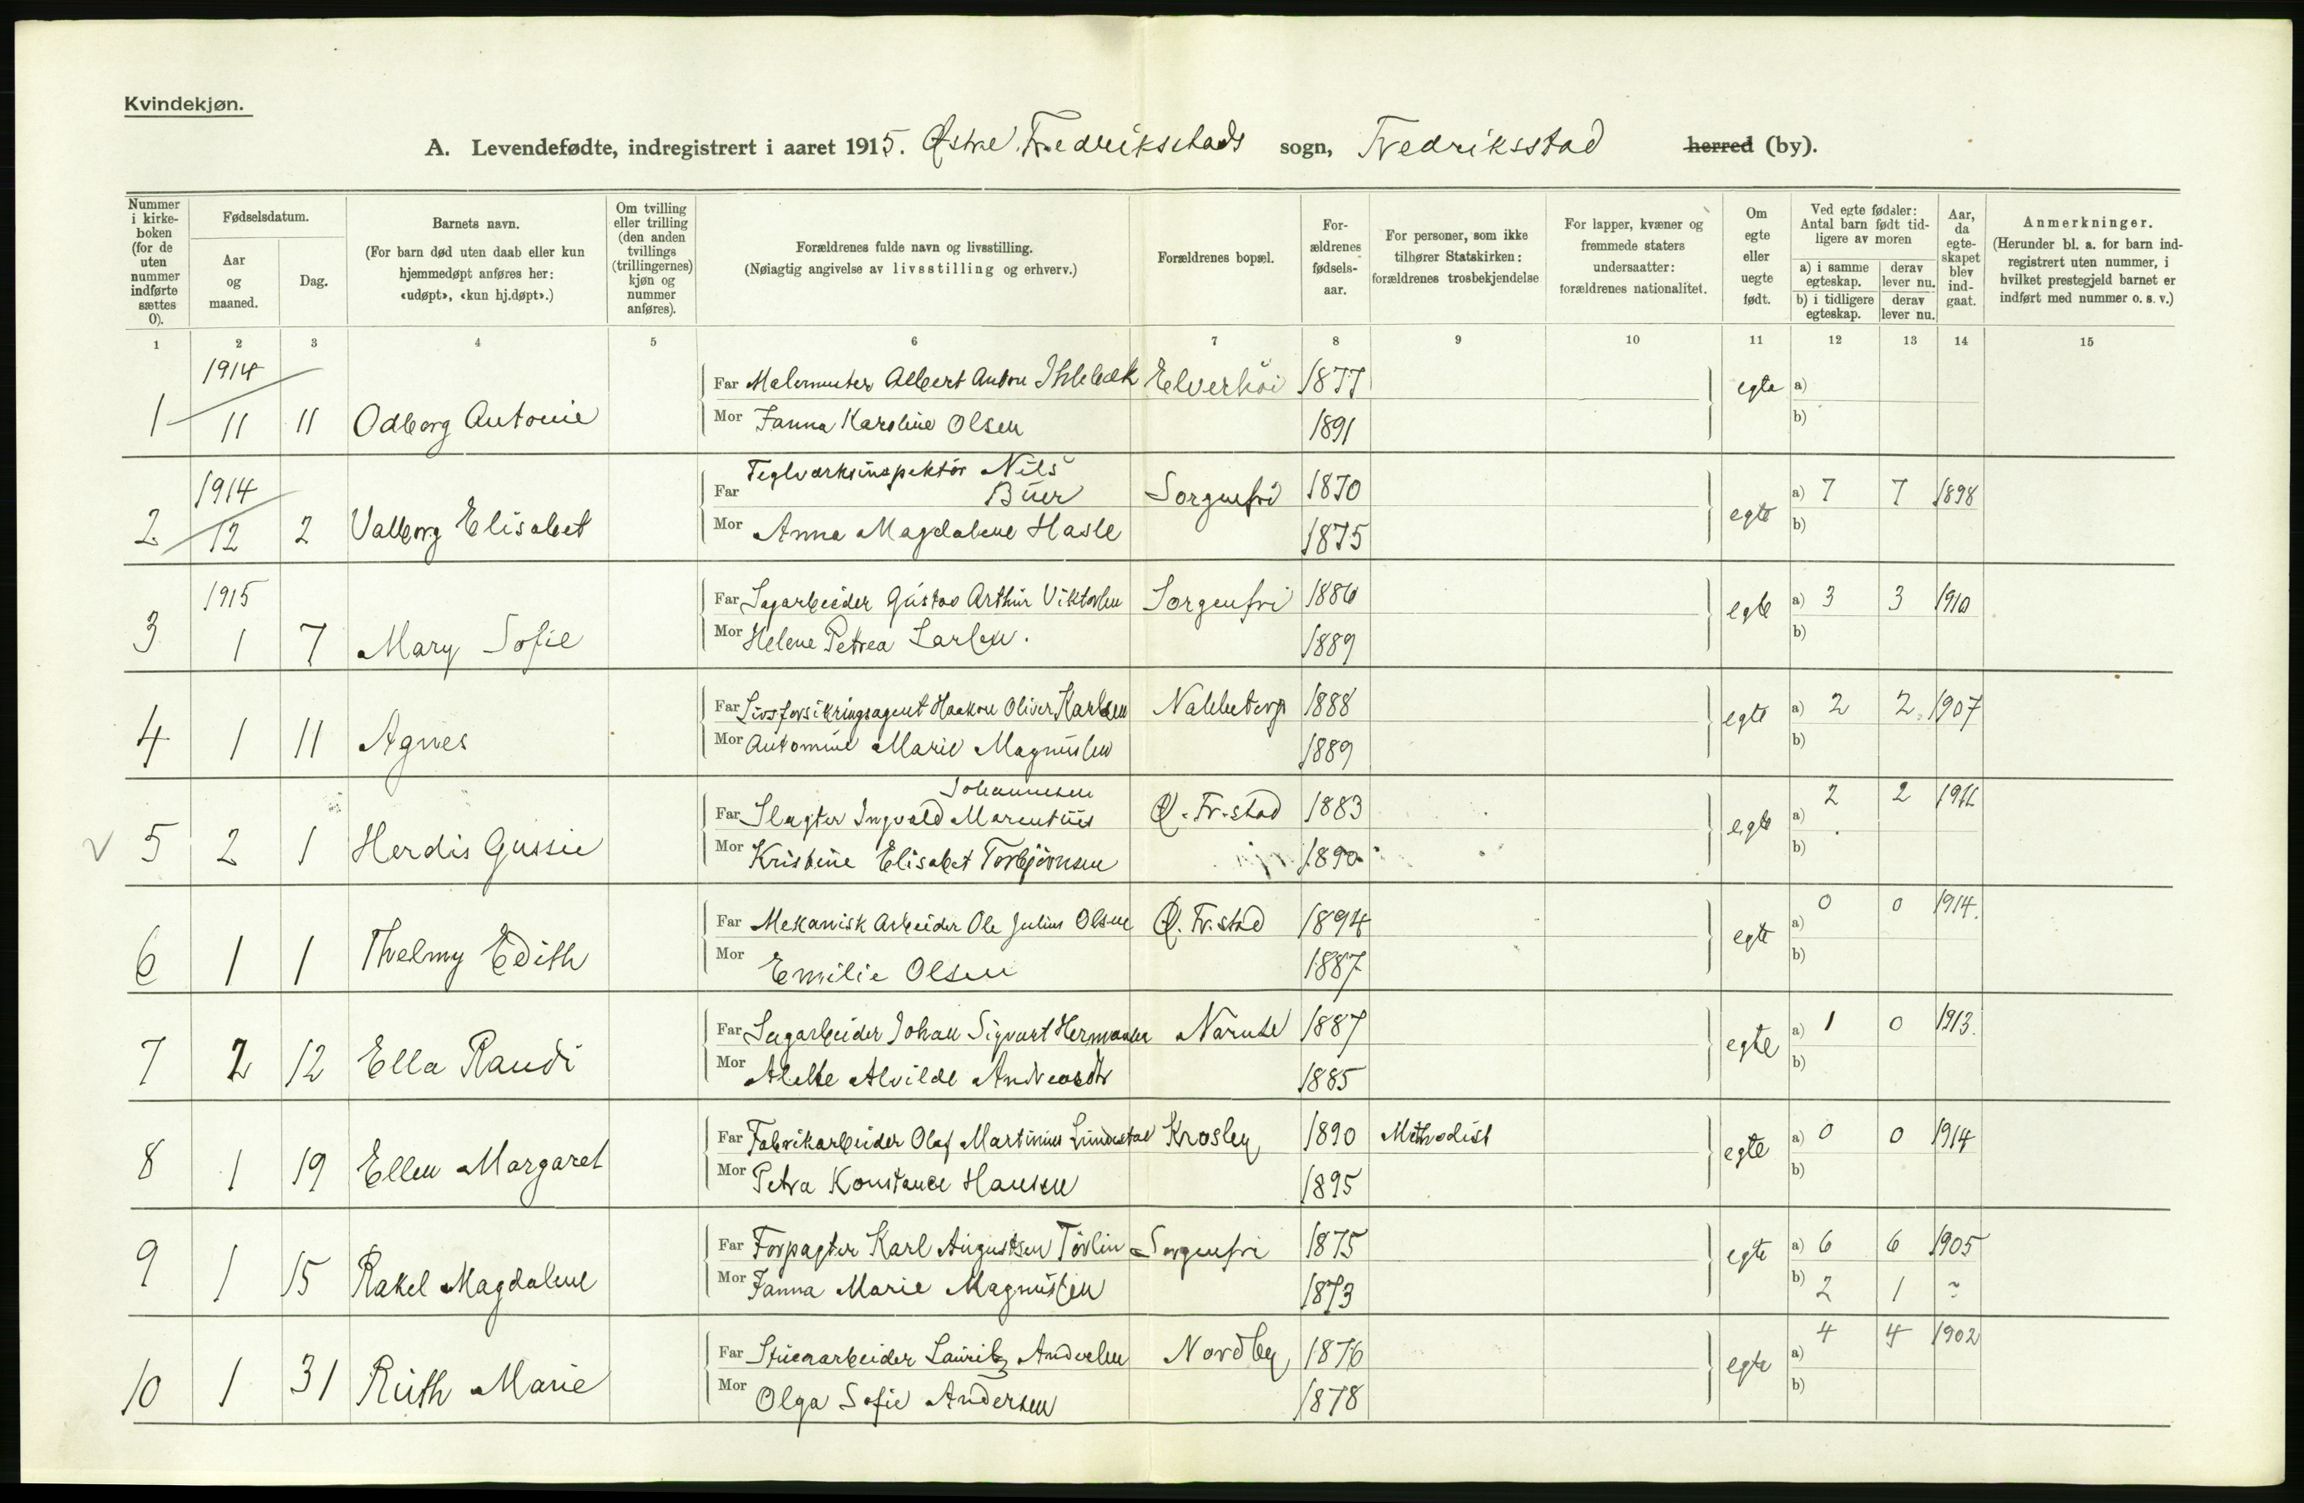 Kvindekjøn.
A. Levendefødte, indregistrert i aaret 1915. Østre Fredriksstads sogn, Fredriksstad herred (by).
Nummer i kirke-boken (for de uten nummer indførte sættes 0).
Fødselsdatum.
Aar og maaned.
Dag.
Barnets navn.
(For barn død uten daab eller kun hjemmedøpt anføres her: «udøpt», «kun hj.døpt».)
Om tvilling eller trilling (den anden tvillings (trillingernes) kjøn og nummer anføres).
Forældrenes fulde navn og livsstilling.
(Nøiagtig angivelse av livsstilling og erhverv.)
Forældrenes bopæl.
For-ældrenes fødsels-aar.
For personer, som ikke tilhører Statskirken: forældrenes trosbekjendelse
For lapper, kvæner og fremmede staters undersaatter: forældrenes nationalitet.
Om egte eller uegte født.
Ved egte fødsler: Antal barn født tid-ligere av moren
a) i samme egteskap.
derav lever nu.
b) i tidligere egteskap.
derav lever nu.
Aar, da egte-skapet blev ind-gaat.
Anmerkninger.
(Herunder bl. a. for barn ind-registrert uten nummer, i hvilket prestegjeld barnet er indført med nummer o. s. v.)
1 2 3 4 5 6 7 8 9 10 11 12 13 14 15
1914
Far Albert Anton Elverhöi 1877 egte a)
1 11 11 Odborg Antonie Mor Janna Karoline Olsen 1891 b)
1914
Teglværksinspektör Nils
Far Büer Sorgenfri 1870 egte a) 7 7 1898
2 12 2 Valborg Elisabet Mor Anna Magdalene Hasle 1875 b)
1915
Far Sagarbeider Gustav Arthur Viktorsen Sorgenfri 1886 egte a) 3 3 1910
3 1 7 Mary Sofie Mor Helene Petrea Larsen. 1889 b)
Far Livsforsikringsagent Haakon Oliver Karlsen Nabbetorp 1888 egte a) 2 2 1907
4 1 11 Agnes Mor Antomine Marie Magnussen 1889 b)
Johannesen
Far Slagter Ingvald Marentius Ø. Fr.stad 1883 egte a) 2 2
5 2 1 Herdis Gussie Mor Kristine Elisabet Torbjörnsen 1890 b)
Far Mekanisk Arbeider Ole Julius Olsen Ø. Fr.stad 1894 egte a) 0 0 1914.
6 1 1 Thelmy Edith Mor Emilie Olsen 1887 b)
Far Sagarbeider Johan Sigvart Hermansen 1887 egte a) 1 0 1913.
7 2 12 Ella Randi Mor Alvilde 1885 b)
Far Fabrikarbeider Olaf Martinius Lundestad Krosby 1890 Methodist egte a) 0 0 1914
8 1 19 Ellen Margaret Mor Petra Konstance Hansen 1895 b)
Far Forpagter Karl Augustsen Sorgenfri 1875 egte a) 6 6 1905
9 1 15 Rakel Magdalene Mor Janna Marie Magnussen 1873 b) 2 1 ~
Far Stuenarbeider Lauritz Andersen Nordby 1876 egte a) 4 4 1902
10 1 31 Ruth Marie Mor Olga Sofie Andersen 1878 b)